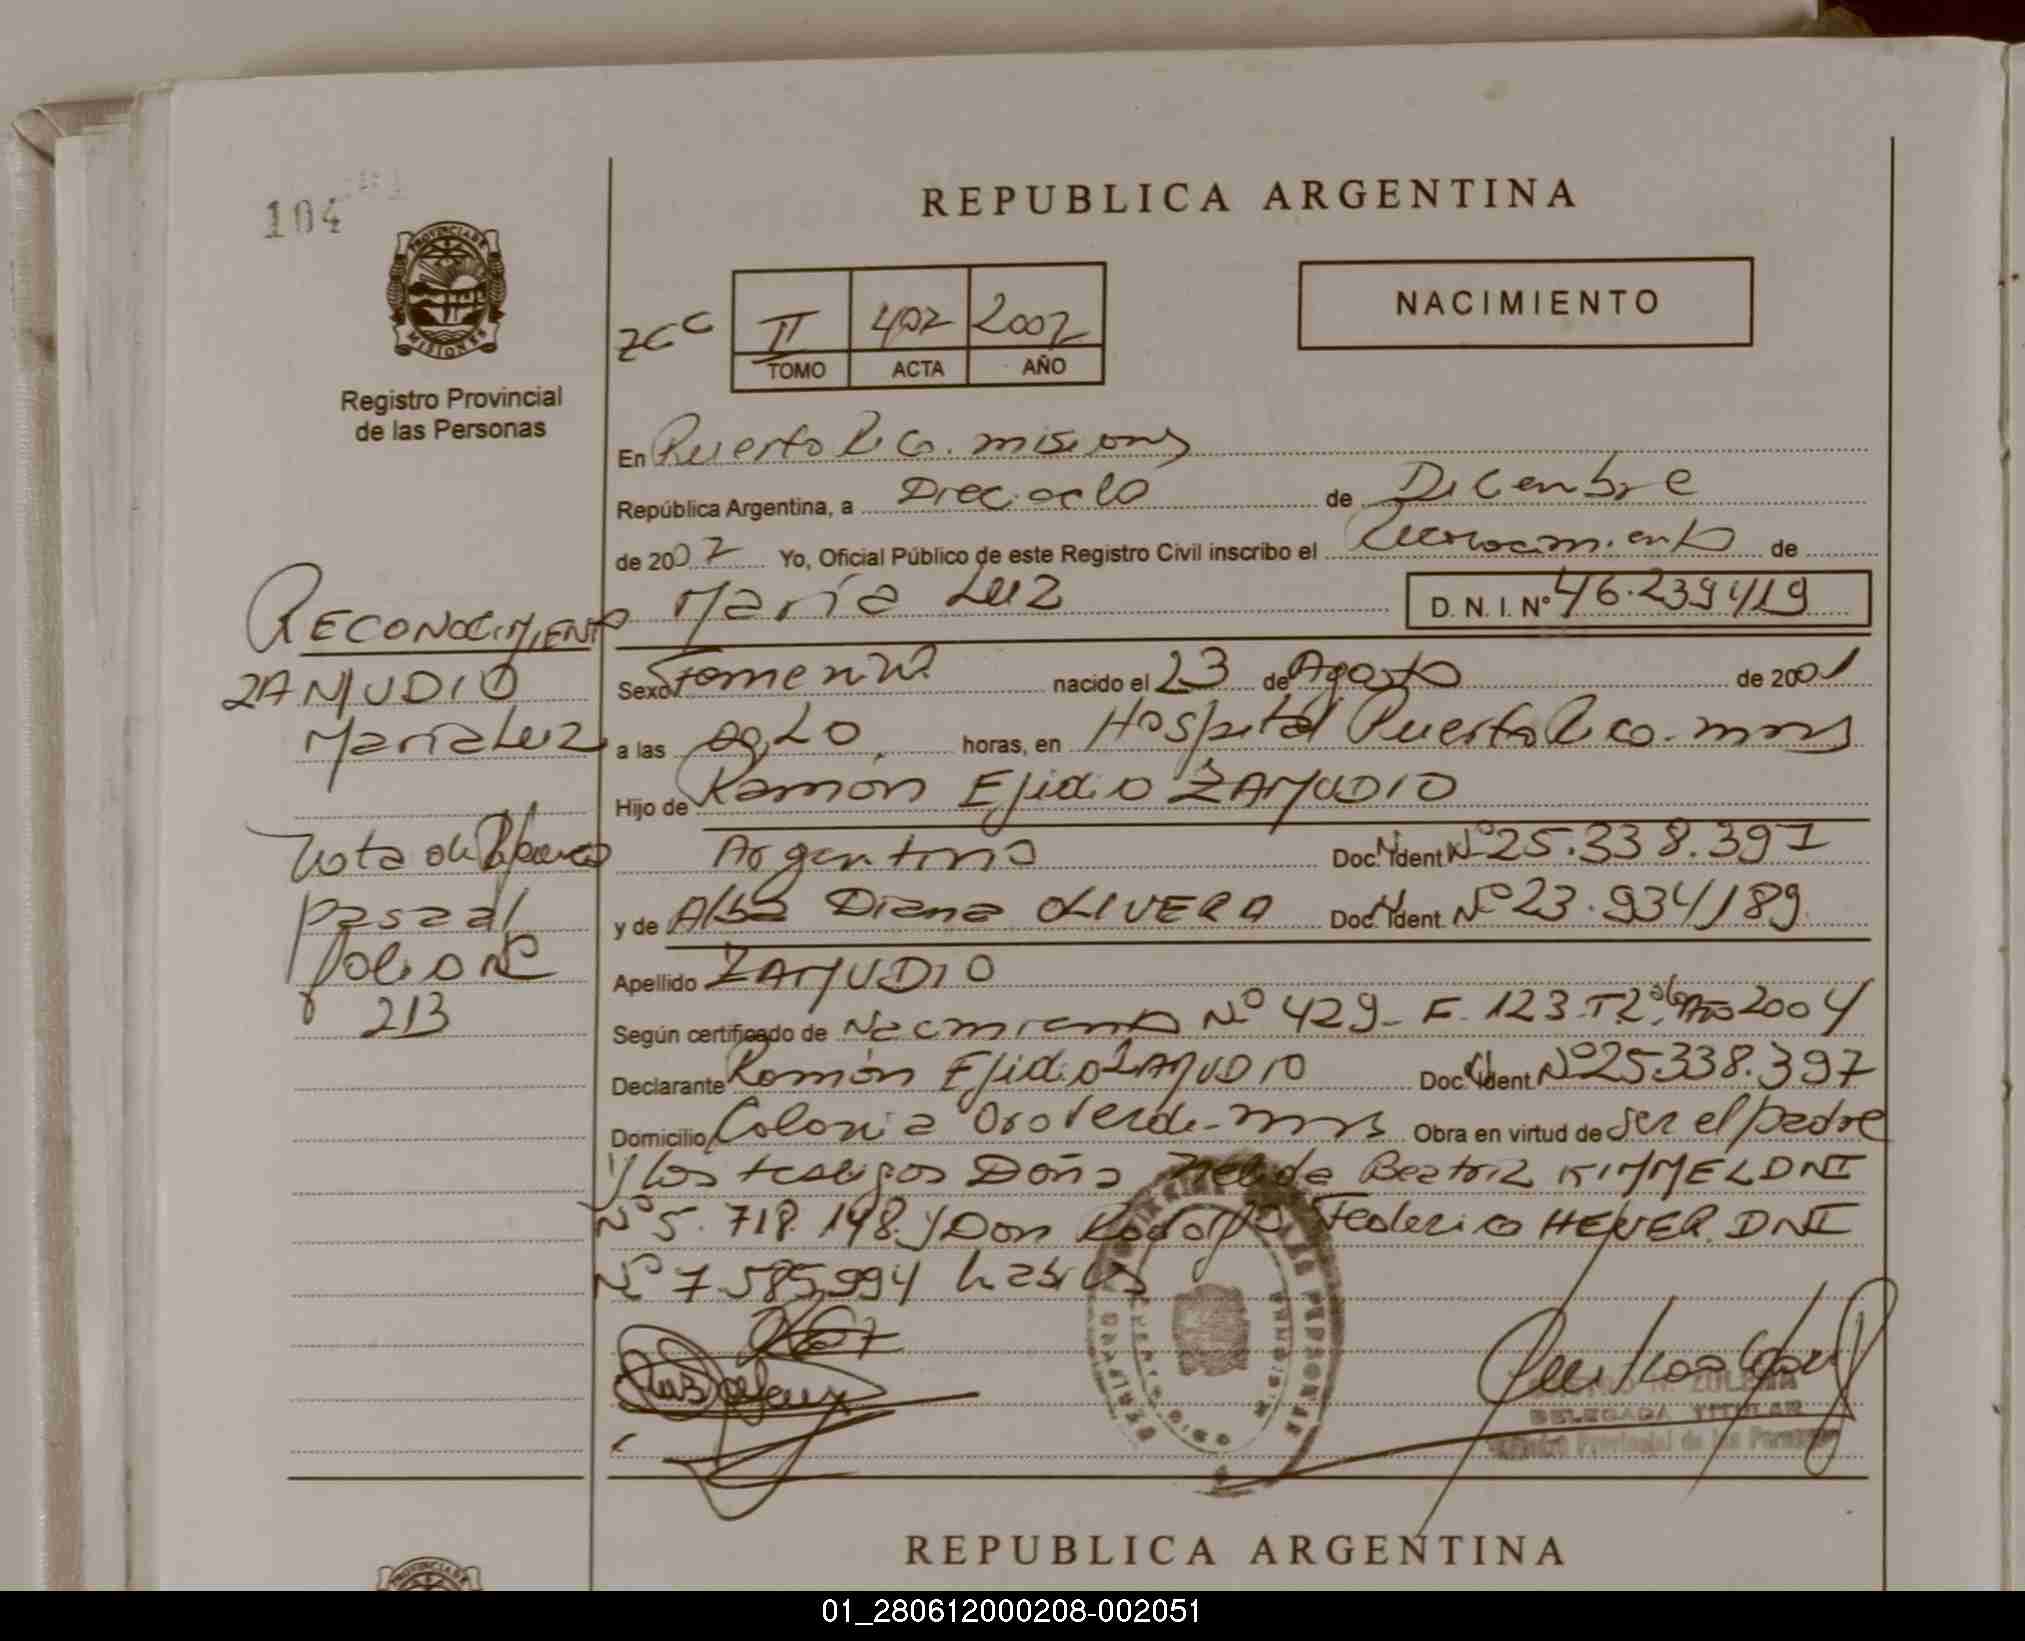 104
PROVINCIA DE
MISIONES
Registro Provincial
de las Personas
REPUBLICA ARGENTINA
II 402 2002
TOMO ACTA AÑO
NACIMIENTO
En Puerto Rico. misiones
República Argentina, a Dieciocho de Diciembre
de 2002 Yo, Oficial Público de este Registro Civil inscribo el Reconocimiento de
María Luz D. N. I. Nº 46.239419
Sexo Femenino nacido el 23 de Agosto de 2001
a las horas, en Hospital Puerto Rico. mnes
Hijo de Ramón Ejidio ZANUDIO
Argentino Doc. Ident Nº 25.338.397
y de Alba Diana OLIVERA Doc. Ident. Nº 23.934189
Apellido ZANUDIO
Según certificado de Nacimiento Nº 429- F. 123. T. 2º Año 2004
Declarante Ramón Ejidio ZANUDIO Doc. Ident Nº 25.338.397
Domicilio Colonia Oro Verde- mnes Obra en virtud de ser el padre
y los testigos Doña Nelida Beatriz KIMMEL DNI
Nº 5.718.148. y Don Rodolfo Federico HEVER. DNI
Nº 7.585.994 habiles
RECONOCIMIENTO
ZANUDIO
María Luz
Nota de
pasa al
folio Nº
213
DELEGADA TITULAR
Registro Provincial de las Personas
REPUBLICA ARGENTINA
01_280612000208-002051